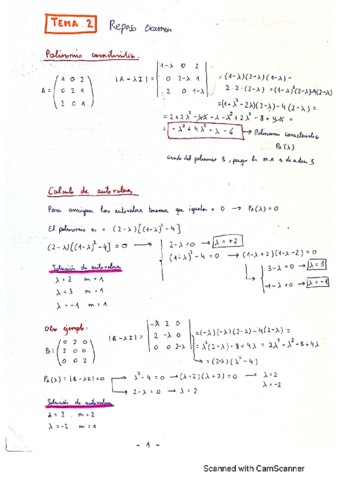 TEMA 2 Repaso examen
Polinomio característico.
A = ( 1 0 2 / 0 2 1 / 2 0 1 ) |A - λI| = | 1-λ 0 2 / 0 2-λ 1 / 2 0 1-λ | = (1-λ)(2-λ)(1-λ) -
2·2·(2-λ) = (1-λ)²(2-λ)-4(2-λ)
= (1+λ²-2λ)(2-λ) - 4(2-λ) =
= -λ³+4λ²-λ-6 → Polinomio característico
Pa(λ)
Grado del polinomio 3, porque la m.A es de orden 3
Calculo de autovalores
Para averiguar los autovalores tenemos que igualar a 0 → Pa(λ)=0
El polinomio es = (2-λ)[(1-λ)²-4]
(2-λ)[(1-λ)²-4]=0 → 2-λ=0 → λ=+2
(1-λ)²-4=0 → (1-λ+2)(1-λ-2)=0
3-λ=0 → λ=3
-1-λ=0 → λ=-1
Solución de autovalores
λ=2 m=1
λ=3 m=1
λ=-1 m=1
Otro ejemplo:
B = ( 0 2 0 / 2 0 0 / 0 0 2 ) |B-λI| = | -λ 2 0 / 2 -λ 0 / 0 0 2-λ | = (-λ)(-λ)(2-λ)-4(2-λ)=
= λ²(2-λ)-8+4λ = 2λ²-λ³-8+4λ
= (2-λ)(λ²-4)
Pa(λ)=|B-λI|=0 → λ²-4=0 → (λ-2)(λ+2)=0 → λ=2
λ=-2
2-λ=0 → λ=2
Solución de autovalores
λ=2 m=2
λ=-2 m=1
- 1 -
Scanned with CamScanner